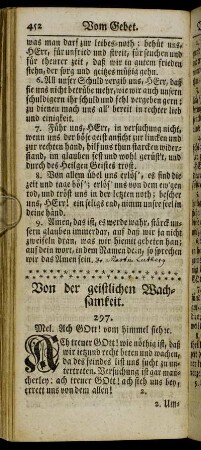 452 Vom Gebet.
was man darf zur leibes-noth: behüt uns,
HErr, für unfried und streit, für seuchen und
für theurer zeit, daß wir in gutem frieden
stehn, der sorg und geitzes müßig gehn.
6. All unser Schuld vergib uns, HErr, daß
sie uns nicht betrübe mehr, wie wir auch unsern
schuldigern ihr schuld und fehl vergeben gern:
zu dienen mach uns all' bereit in rechter lieb
und einigkeit.
7. Führ uns, HErr, in versuchung nicht,
wenn uns der böse geist anficht zur lincken und
zur rechten hand, hilf uns thun starcken wider-
stand, im glauben fest und wohl gerüst't, und
durch des Heilgen Geistes trost.
8. Von allem übel uns erlös', es sind die
zeit und tage bös'; erlös' uns von dem ew'gen
tod, und tröst uns in der letzten noth: bescher
uns, HErr! ein selges end, nimm unsre seel in
deine händ.
9. Amen, das ist, es werde wahr, stärck un-
sern glauben immerdar, auf daß wir ja nicht
zweifeln dran, was wir hiemit gebeten han;
auf dein wort, in dem Namen dein, so sprechen
wir das Amen fein. Dr. Martin Luther.
Von der geistlichen Wach-
samkeit.
297.
Mel. Ach GOtt! vom himmel sieh ꝛc.
ACh treuer GOtt! wie nöthig ist, daß
wir ietzund recht beten und wachen,
da des feindes list uns sucht zu un-
tertreten. Versuchung ist gar man-
cherley: ach treuer GOtt! ach steh uns bey,
errett uns von dem allen! 2.
2. Um-